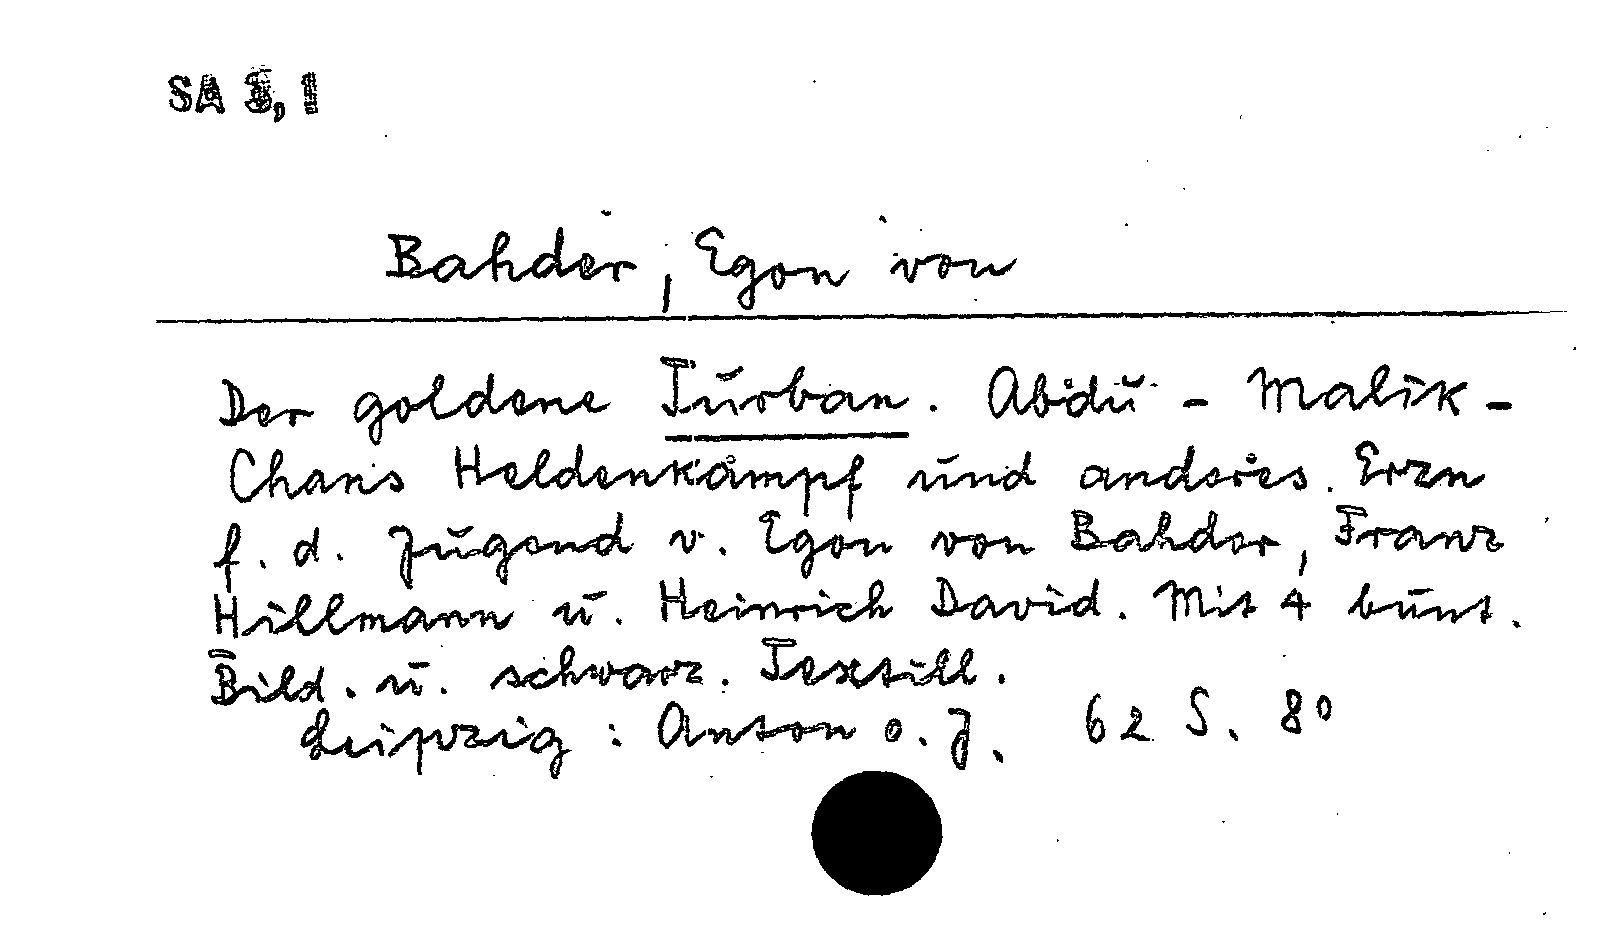 SA 3,1
Bahder, Egon von
Der goldene Turban. Abdu - Malik -
Chans Heldenkampf und anderes. Erzn
f. d. Jugend v. Egon von Bahder, Franz
Hillmann u. Heinrich David. Mit 4 bunt.
Bild. u. schwarz. Textill.
Leipzig: Anton o. J. 62 S. 8°